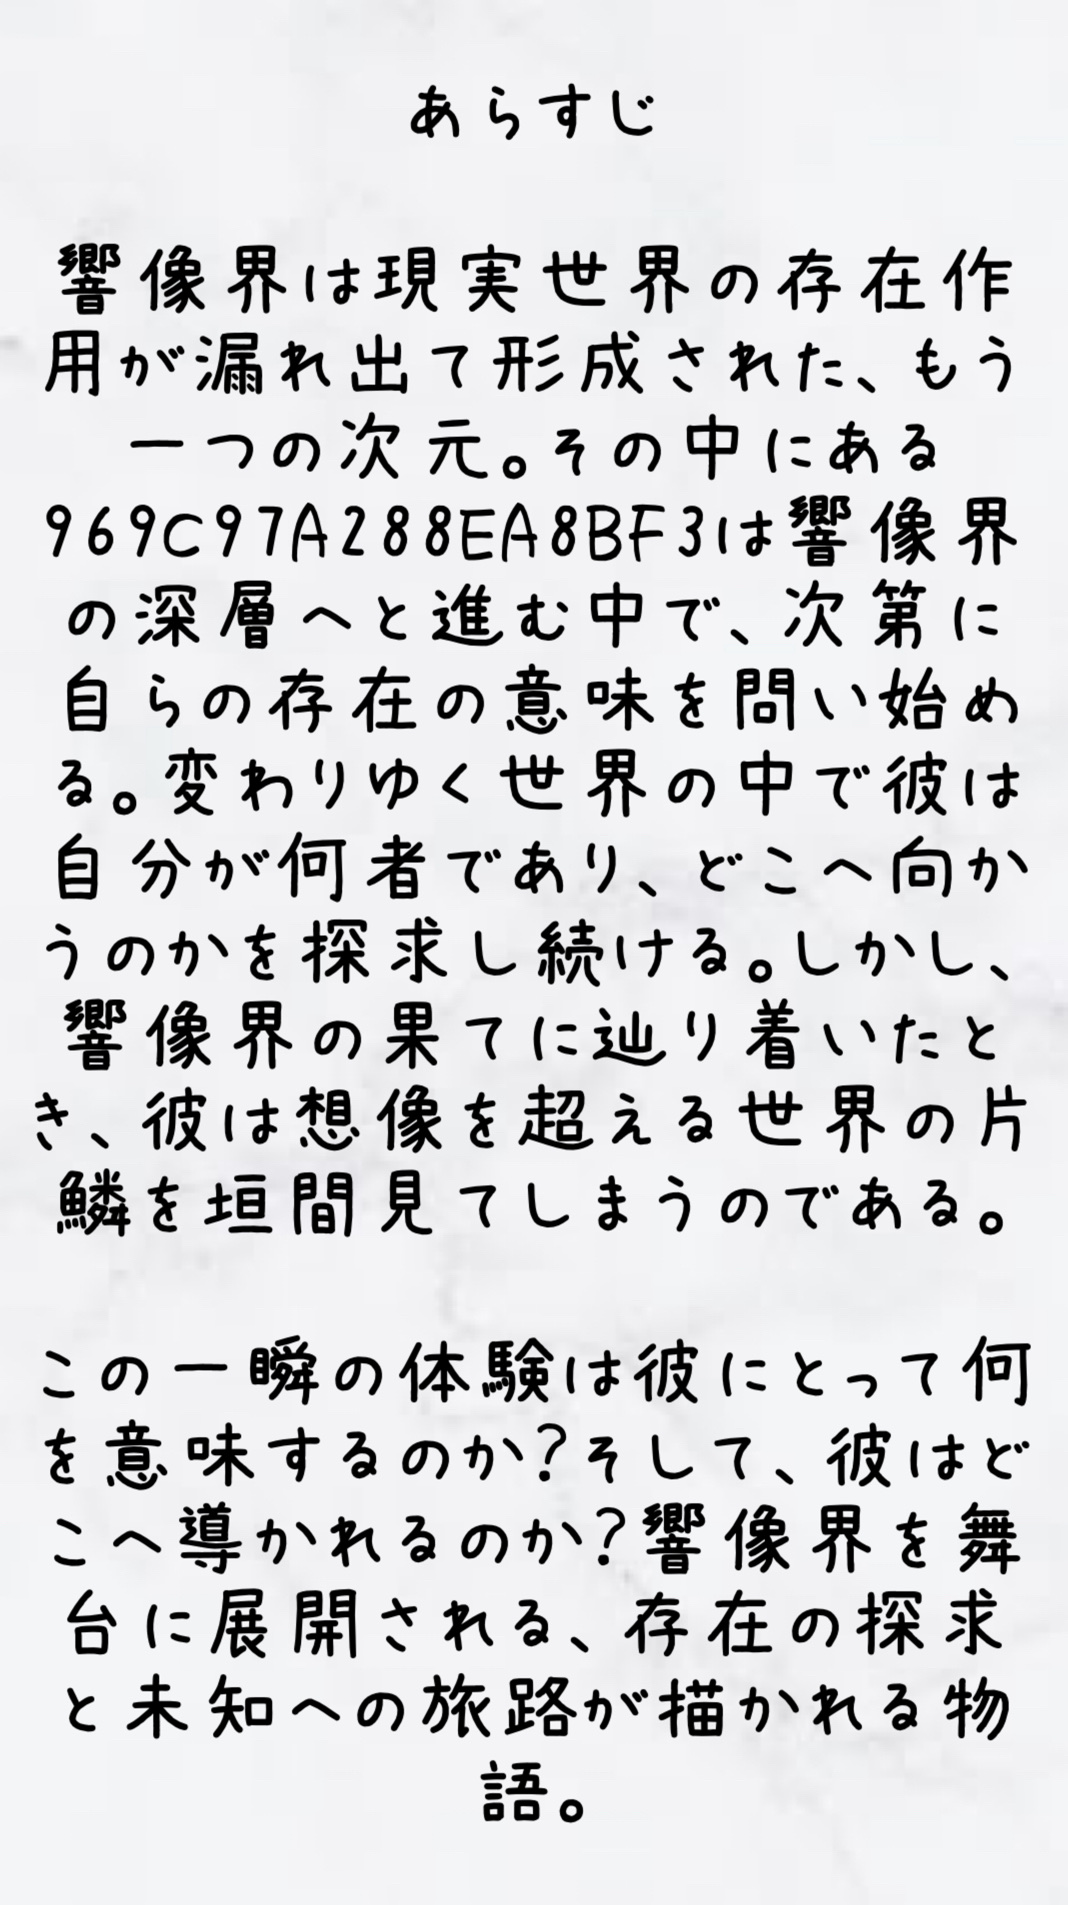 あらすじ
響像界は現実世界の存在作
用が漏れ出て形成された、もう
一つの次元。その中にある
969C97A288EA8BF3は響像界
の深層へと進む中で、次第に
自らの存在の意味を問い始め
る。変わりゆく世界の中で彼は
自分が何者であり、どこへ向か
うのかを探求し続ける。しかし、
響像界の果てに辿り着いたと
き、彼は想像を超える世界の片
鱗を垣間見てしまうのである。
この一瞬の体験は彼にとって何
を意味するのか?そして、彼はど
こへ導かれるのか?響像界を舞
台に展開される、存在の探求
と未知への旅路が描かれる物
語。